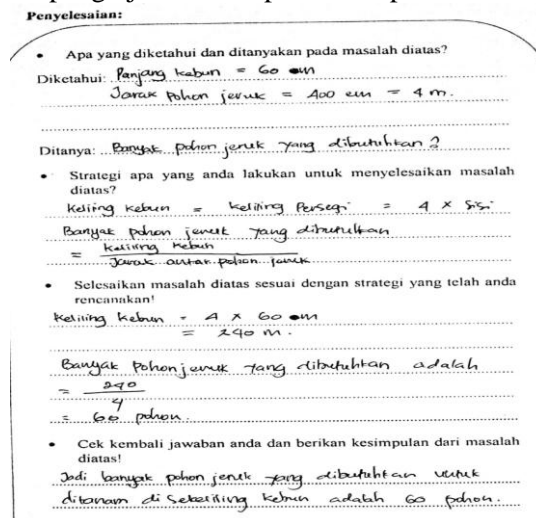 Penyelesaian:
• Apa yang diketahui dan ditanyakan pada masalah diatas?
Diketahui: Panjang kebun = 60 m
Jarak pohon jeruk = 400 cm = 4 m.
Ditanya: Banyak pohon jeruk yang dibutuhkan?
• Strategi apa yang anda lakukan untuk menyelesaikan masalah
diatas?
Keliling kebun = keliling Persegi = 4 x Sisi
Banyak pohon jeruk yang dibutuhkan
= Keliling kebun
Jarak antar pohon jeruk
• Selesaikan masalah diatas sesuai dengan strategi yang telah anda
rencanakan!
Keliling kebun = 4 x 60 m
= 240 m.
Banyak Pohon jeruk yang dibutuhkan adalah
= 240
4
= 60 pohon.
• Cek kembali jawaban anda dan berikan kesimpulan dari masalah
diatas!
Jadi banyak pohon jeruk yang dibutuhkan untuk
ditanam di sekeliling kebun adalah 60 pohon.